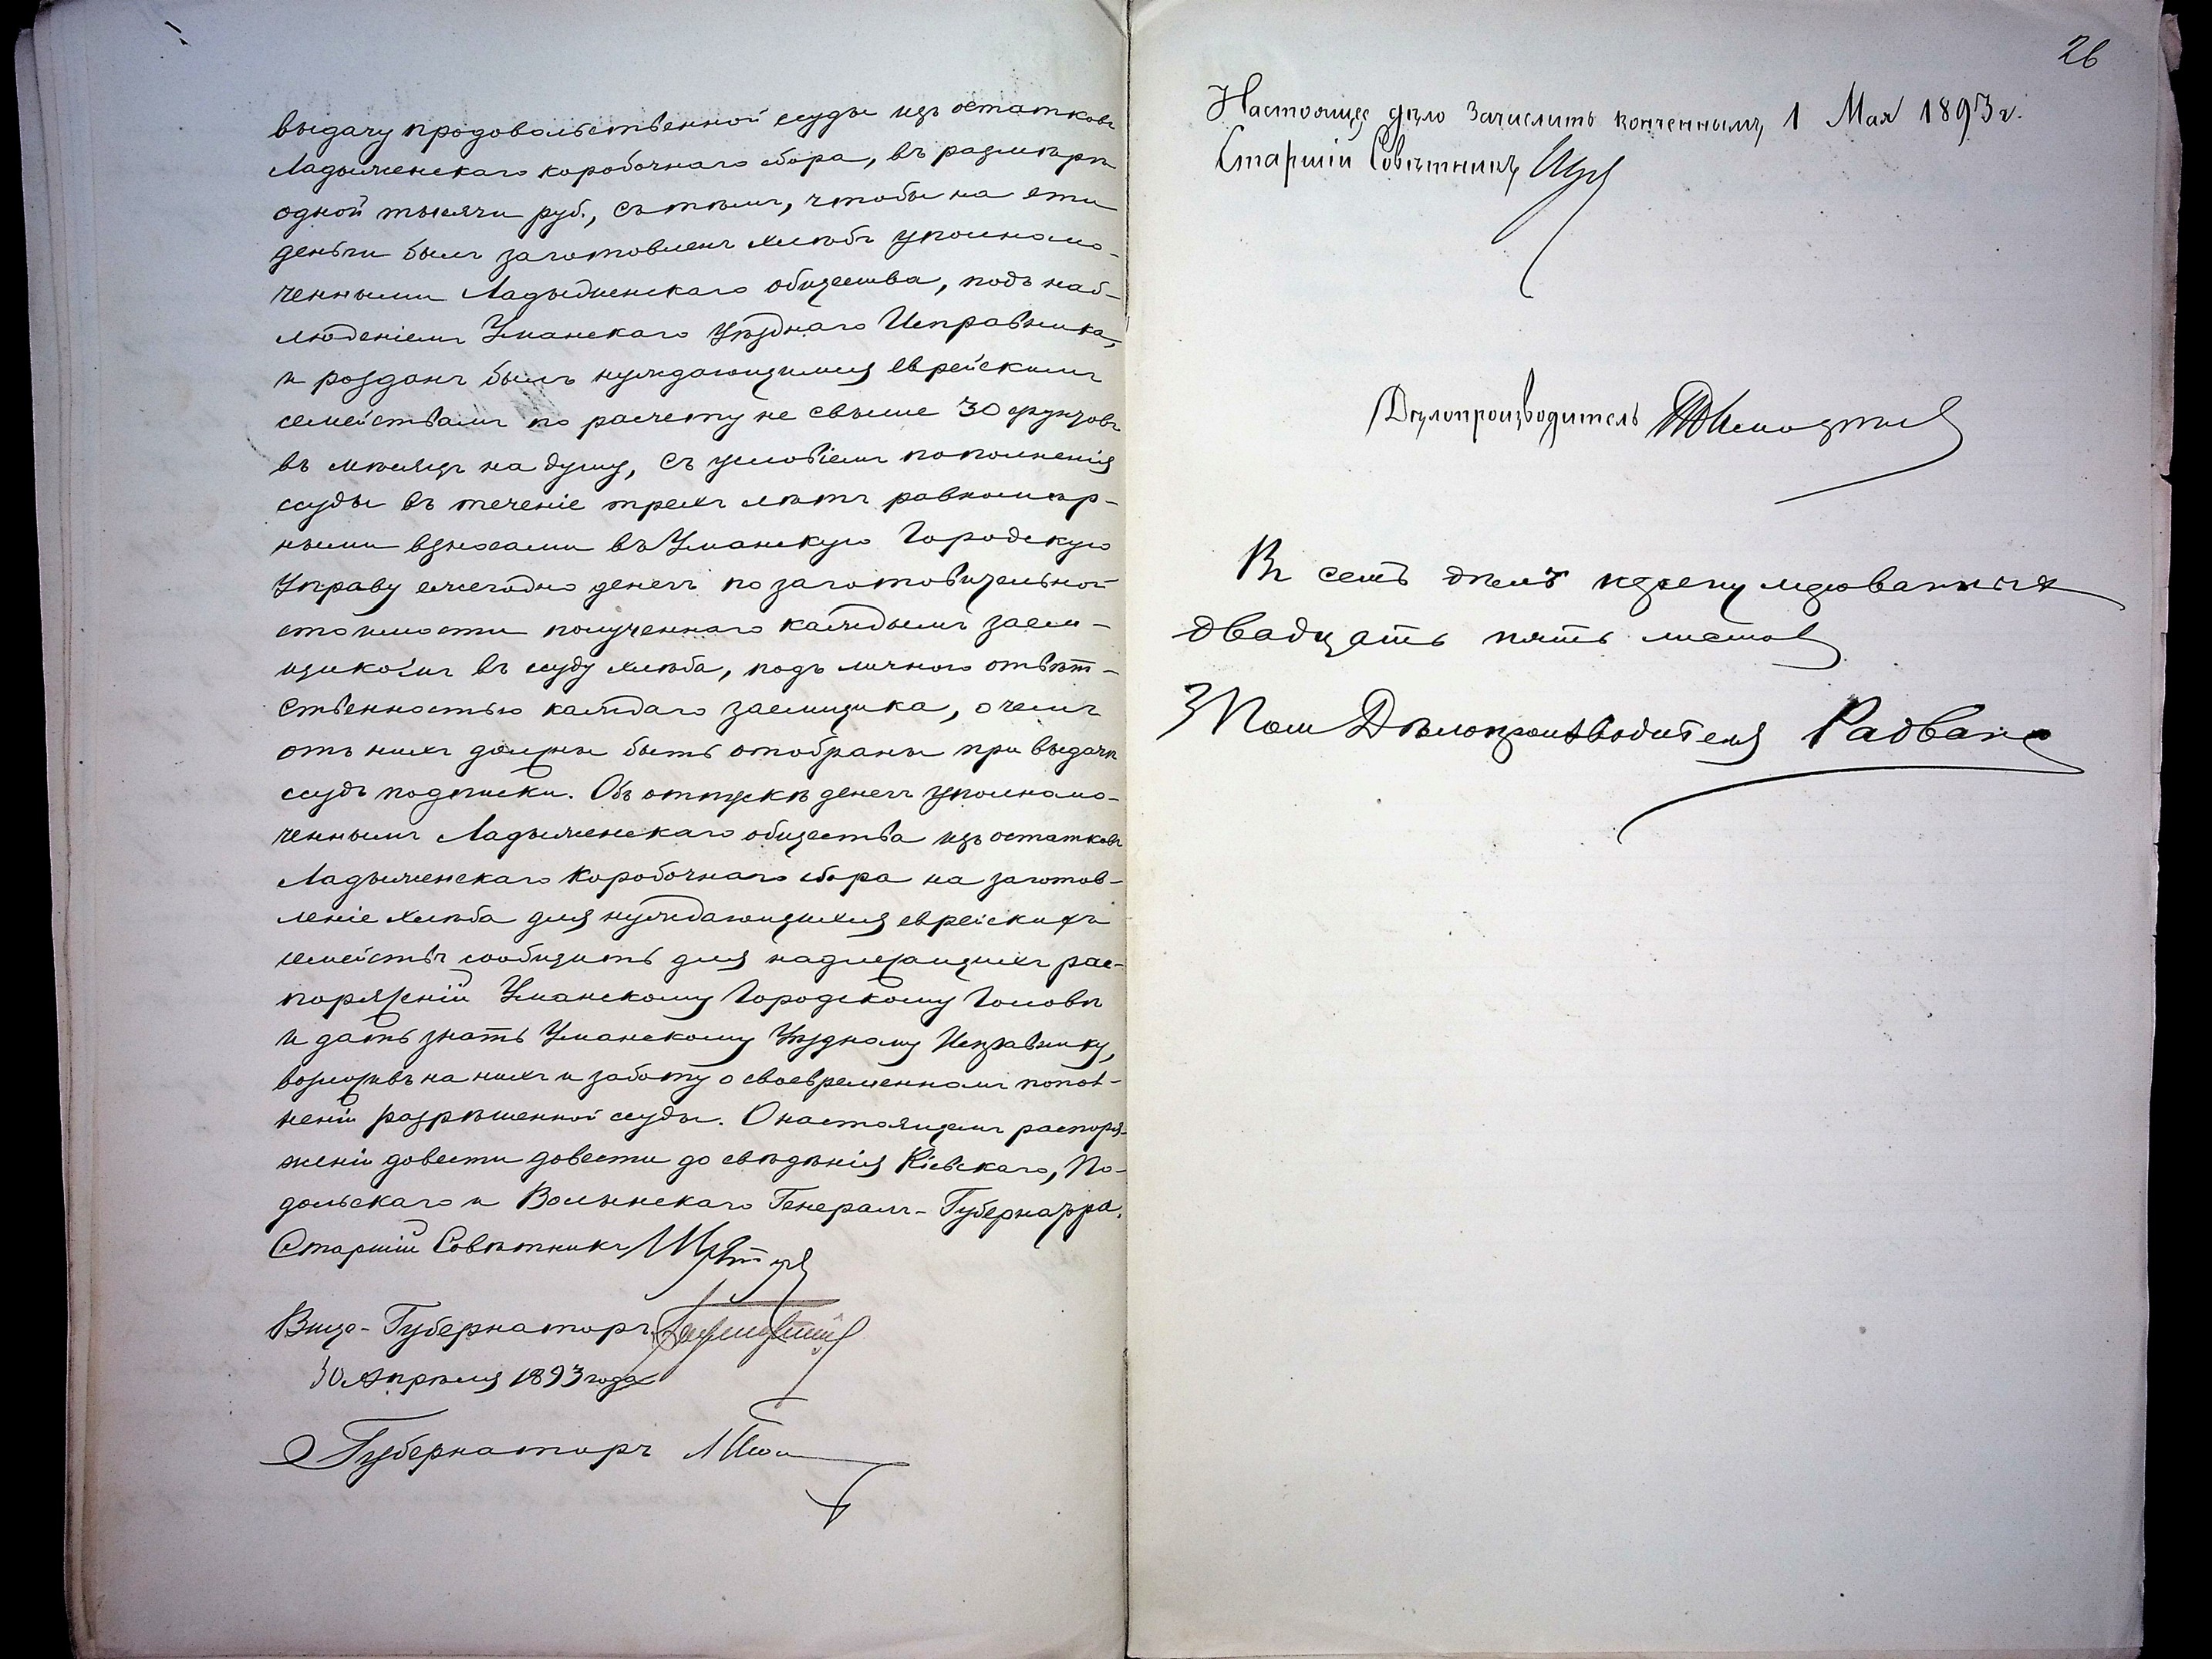 выдачу продовольственной ссуды изъ остатковъ
Ладыженскаго коробочнаго сбора, въ размѣрѣ
одной тысячи руб., съ тѣмъ, чтобы на эти
деньги былъ заготовленъ хлѣбъ уполномо-
ченными Ладыженскаго общества, подъ наб-
люденіемъ Уманскаго Уѣзднаго Исправника,
и розданъ былъ нуждающимся еврейскимъ
семействамъ по расчету не свыше 30 фунтовъ
въ мѣсяцъ на душу, съ условіемъ пополненія
ссуды въ теченіе трехъ лѣтъ равномѣр-
ными взносами въ Уманскую Городскую
Управу ежегодно денегъ по заготовительной
стоимости полученнаго каждымъ заем-
щикомъ въ ссуду хлѣба, подъ личною отвѣт-
ственностью каждаго заемщика, о чемъ
отъ нихъ должны быть отобраны при выдачѣ
ссудъ подписки. Объ отпускѣ денегъ уполномо-
ченнымъ Ладыженскаго общества изъ остатковъ
Ладыженскаго коробочнаго сбора на заготов-
леніе хлѣба для нуждающихся еврейскихъ
семействъ сообщить для надлежащихъ рас-
поряженій Уманскому Городскому Головѣ
и дать знать Уманскому Уѣздному Исправнику,
возложивъ на нихъ и заботу о своевременномъ попол-
неніи разрѣшенной ссуды. О настоящемъ распоря-
женіи довести довести до свѣдѣнія Кіевскаго, По-
дольскаго и Волынскаго Генералъ-Губернатора.
Старшій Совѣтникъ
Вице-Губернаторъ
30 Апрѣля 1893 года
Губернаторъ
26
Настоящее дѣло зачислить конченнымъ, 1 Мая 1893 г.
Старшій Совѣтникъ
Дѣлопроизводитель
Въ семъ дѣлѣ
двадцать пять листовъ
Дѣлопроизводителя Радванъ